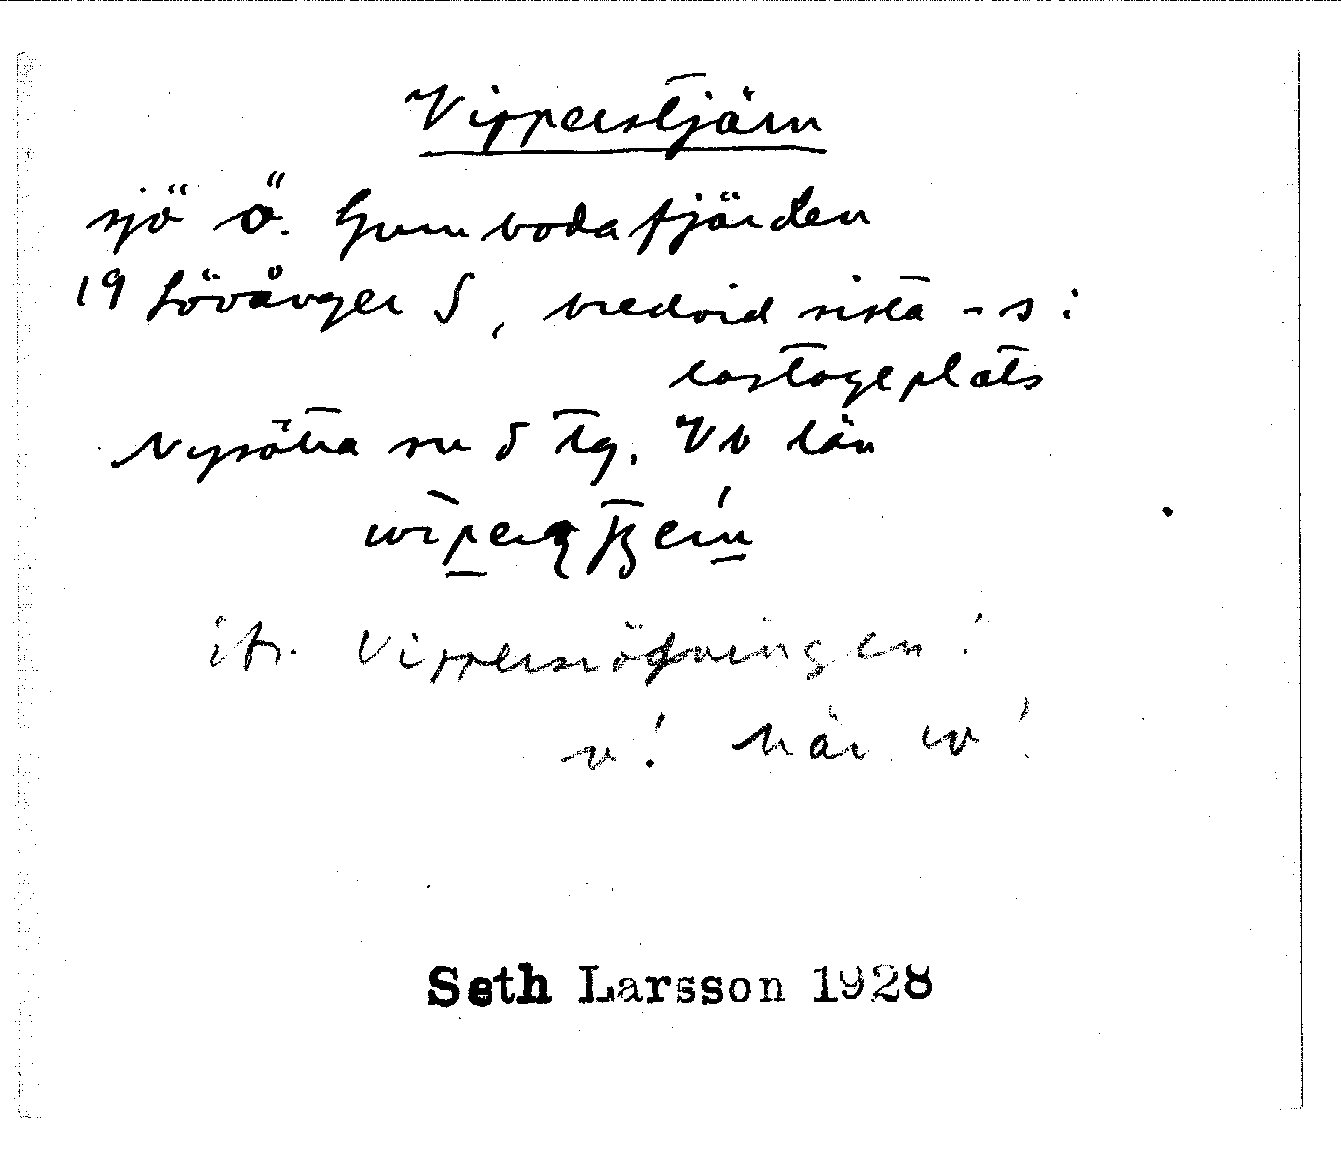 Vipperstjärn
sjö ö. Gumbodafjärden
19 Lövånger S, bredvid sista -s:
lastageplats
Nysätra sn S tg. Vb län
jfr. Vippersrödningen!
v! här w!
Seth Larsson 1928